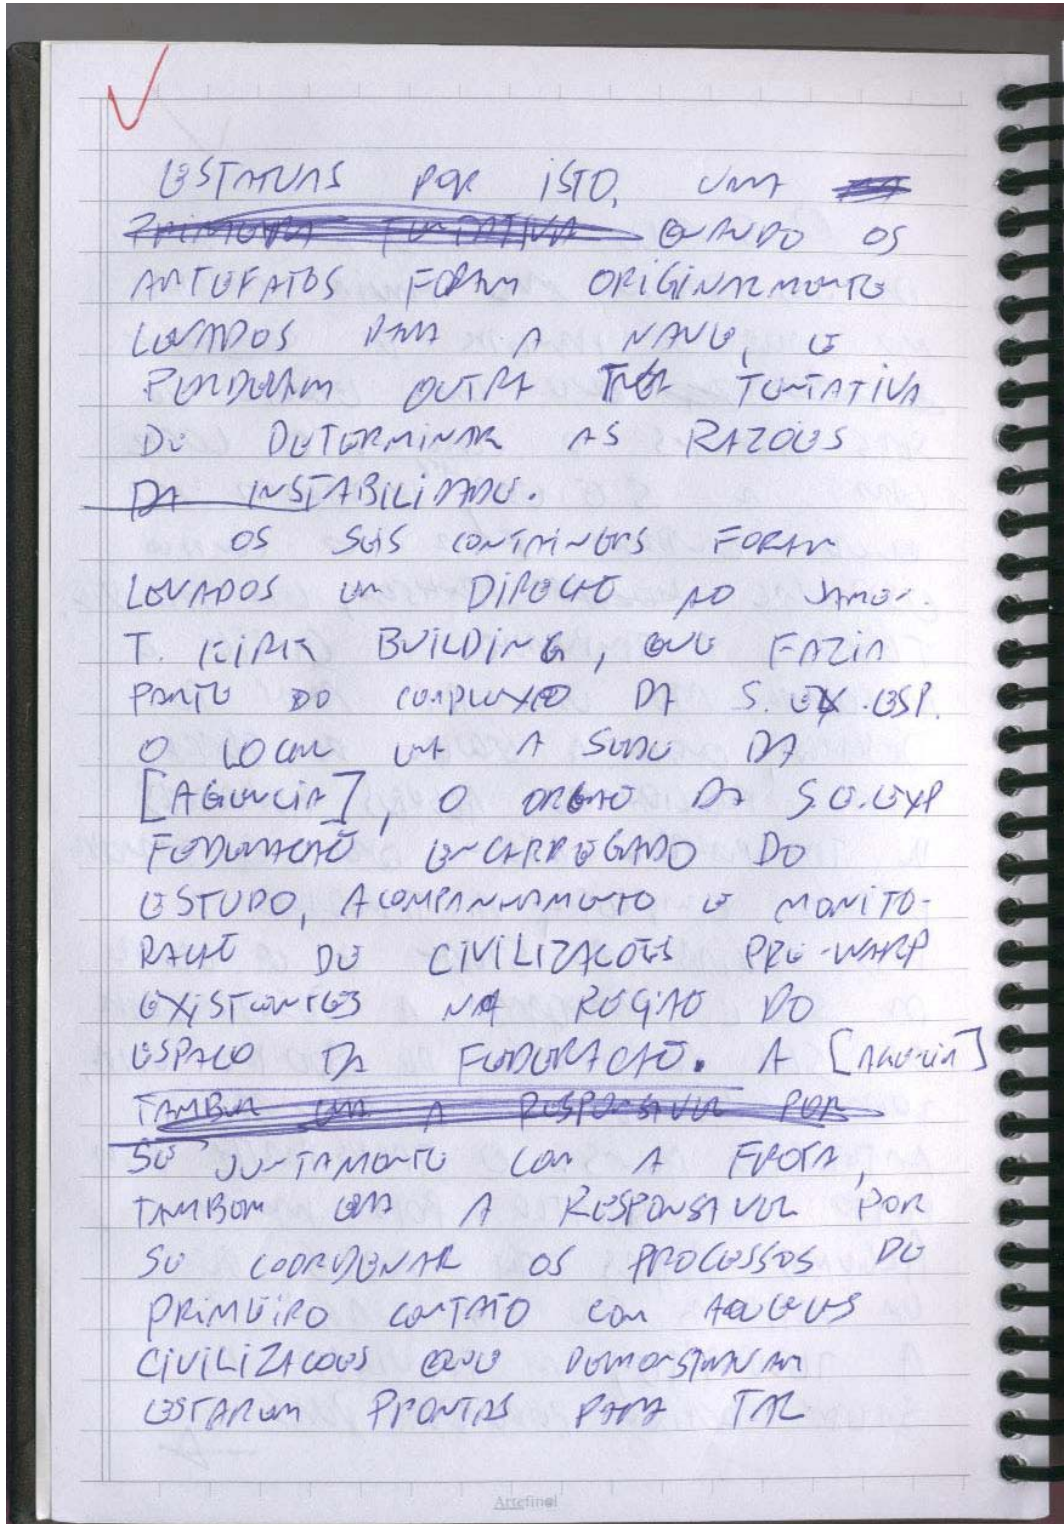 ESTATUAS POR ISTO, UMA
PRIMEIRA TENTATIVA QUANDO OS
ARTEFATOS FORAM ORIGINALMENTE
LEVADOS PARA A NAVE, E
PERDERAM OUTRA TENTATIVA
DE DETERMINAR AS RAZOES
DA INSTABILIDADE.
OS SEIS CONTAINERS FORAM
LEVADOS EM DIREÇÃO AO JAMES
T. KIRK BUILDING, QUE FAZIA
PARTE DO COMPLEXO DA S.EX.ESP.
O LOCAL ERA A SEDE DA
[AGENCIA], O ORGAO DA S.E.EXP
FEDERAÇÃO ENCARREGADO DO
ESTUDO, ACOMPANHAMENTO E MONITO-
RAÇÃO DE CIVILIZAÇÕES PRE-WARP
EXISTENTES NA REGIAO DO
ESPAÇO DA FEDERAÇÃO. A [AGENCIA]
TAMBEM ERA A RESPONSAVEL POR
SE JUNTAMENTE COM A FROTA,
TAMBEM ERA A RESPONSAVEL POR
SE COORDENAR OS PROCESSOS DE
PRIMEIRO CONTATO COM AQUELES
CIVILIZACOES QUE DEMONSTRAVAM
ESTAREM PRONTAS PARA TAL
Artefinal